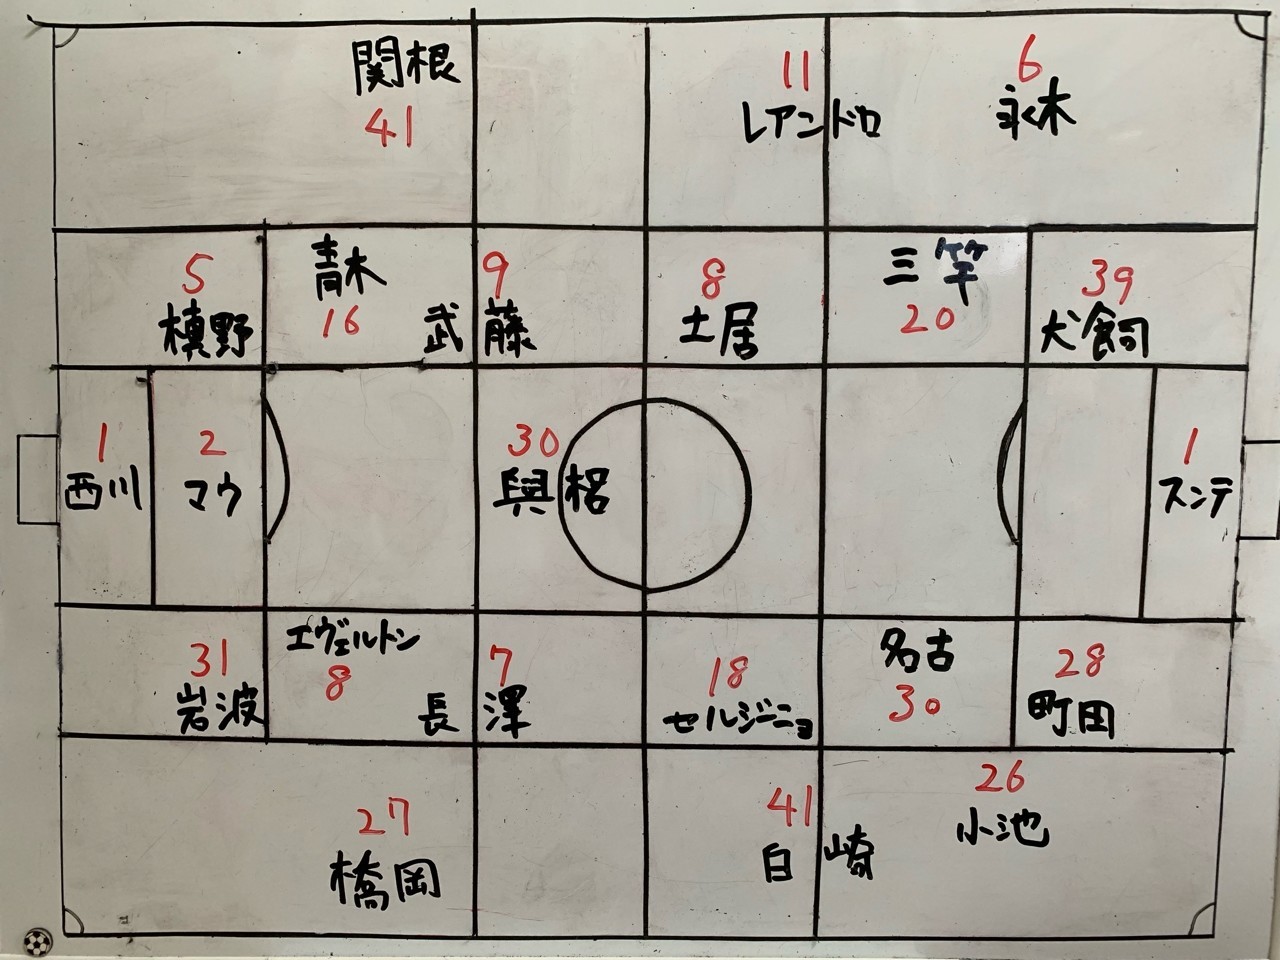 関根
41
11
レアンドロ
6
永木
5
槙野
青木
16
9
武藤
8
土居
三竿
20
39
犬飼
1
西川
2
マウ
30
興梠
1
スンテ
31
岩波
エヴェルトン
8
7
長澤
18
セルジーニョ
名古
30
28
町田
27
橋岡
41
白崎
26
小池